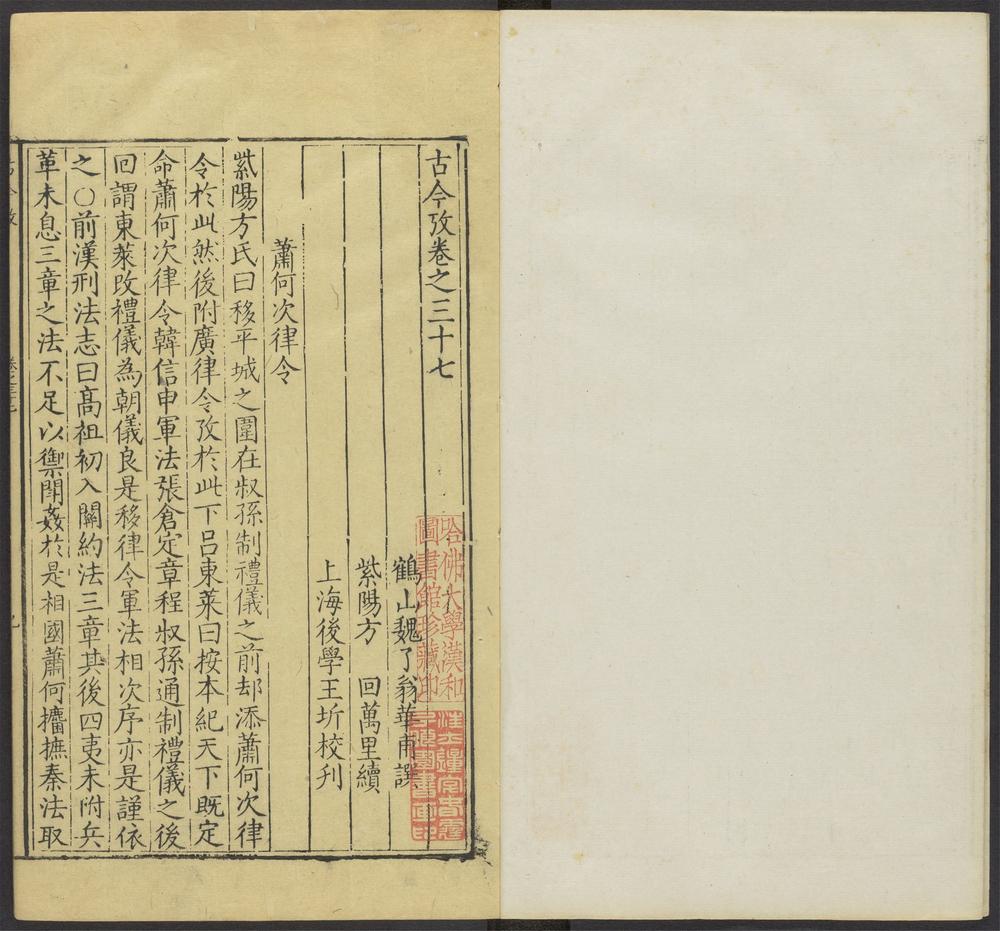 古今攷卷之三十七
鶴山魏了翁華甫譔
紫陽方　回萬里續
上海後學王圻校刋
蕭何次律令
紫陽方氏曰移平城之圍在叔孫制禮儀之前却添蕭何次律
令於此然後附廣律令攷於此下吕東萊曰按本紀天下既定
命蕭何次律令韓信申軍法張倉定章程叔孫通制禮儀之後
回謂東萊改禮儀為朝儀良是移律令軍法相次序亦是謹依
之○前漢刑法志曰髙祖初入關約法三章其後四夷未附兵
革未息三章之法不足以禦姦於是相國蕭何攟摭秦法取
哈佛大學漢和
圖書館珍藏印